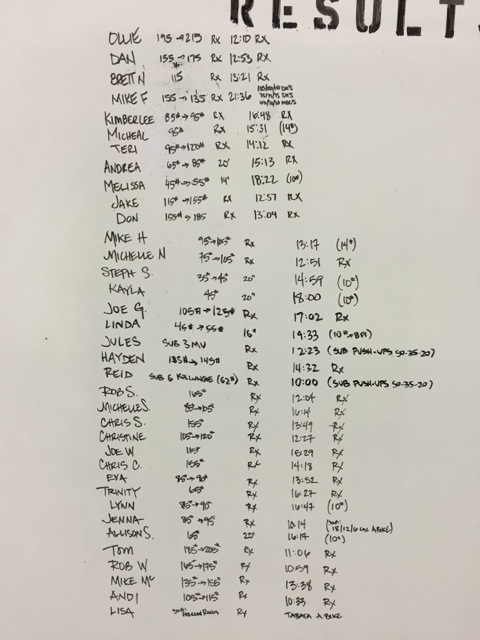 RESULTS
OLLIE 195→215 Rx 12:10 Rx
DAN 155→175 Rx 12:53 Rx
BRETT N 115 Rx 13:21 Rx
MIKE F 155→135 Rx 21:36
KIMBERLEE 85#→95# Rx 16:48 Rx
MICHEAL 95# Rx 15:31 (14#)
TERI 95#→120# Rx 14:12 Rx
ANDREA 65#→85# 20" 15:13 Rx
MELISSA 45#→55# 14" 18:22 (10#)
JAKE 115#→155# Rx 12:57 Rx
DON 155#→185 Rx 13:04 Rx
MIKE H 95#→105# Rx 13:17 (14#)
MICHELLE N 75#→105# Rx 12:51 Rx
STEPH S. 35#→45# 20" 14:59 (10#)
KAYLA 45# 20" 18:00 (10#)
JOE G. 105#→125# Rx 17:02 Rx
LINDA 45#→55# 16" 14:33
JULES SUB 3MU Rx 12:23 (SUB PUSH-UPS 50-35-20)
HAYDEN 135#→145# Rx 14:32 Rx
REID SUB 6 (62#) Rx 10:00 (SUB PUSH-UPS 50-35-20)
ROB S. 165# Rx 12:04 Rx
MICHELLE S. Rx Rx
CHRIS S. 155# Rx 13:49 Rx
CHRISTINE 105#→120# Rx 12:27 Rx
JOE W 115# Rx 15:29 Rx
CHRIS C. 155# Rx 14:18 Rx
EVA 85#→90# Rx 13:52 Rx
TRINITY 65# Rx 16:27 Rx
LYNN 85#→90# Rx 16:47 (10#)
JENNA 85#→95# Rx 10:14
ALLISON S. 65# 20" 16:17 (10#)
TOM 185#→205# Rx 11:06 Rx
ROB W 165#→175# Rx 10:59 Rx
MIKE Mc 135#→155# Rx 13:38 Rx
ANDI 105#→115# Rx 10:33 Rx
LISA Rx TABATA A.BIKE